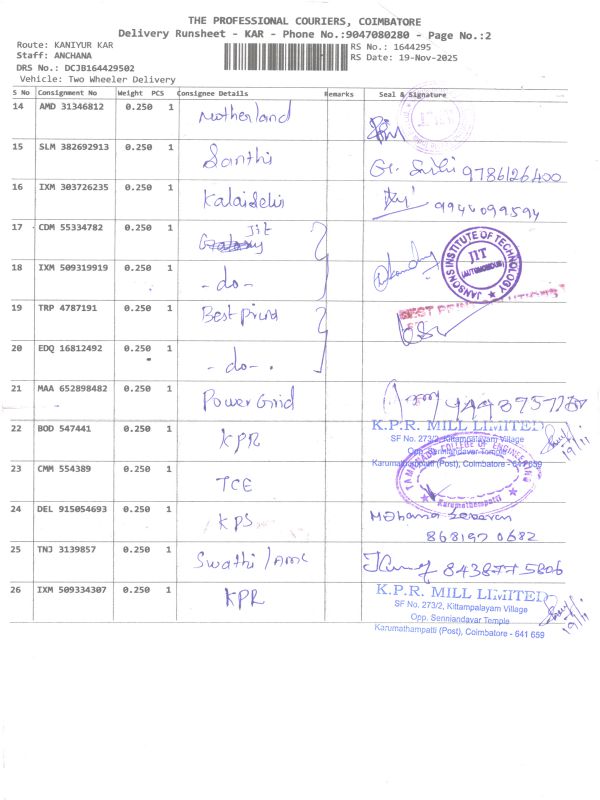 THE PROFESSIONAL COURIERS, COIMBATORE
Delivery Runsheet - KAR - Phone No.:9047080280 - Page No.:2
Route: KANIYUR KAR
RS No.: 1644295
Staff: ANCHANA
RS Date: 19-Nov-2025
DRS No.: DCJB164429502
Vehicle: Two Wheeler Delivery
S No Consignment No Weight PCS Consignee Details Remarks Seal & Signature
14 AMD 31346812 0.250 1 Motherland
15 SLM 382692913 0.250 1 Santhi 9786126400
16 IXM 303726235 0.250 1 Kalaiselvi 9944099594
17 CDM 55334782 0.250 1 JIT
JANSONS INSTITUTE OF TECHNOLOGY
JIT
(AUTONOMOUS)
18 IXM 509319919 0.250 1 -do-
19 TRP 4787191 0.250 1 Best Print
BEST
20 EDQ 16812492 0.250 1 -do-.
21 MAA 652898482 0.250 1 Power Grid
22 BOD 547441 0.250 1 KPR
K.P.R. MILL LIMITED
SF No. 273/2, Kittampalayam Village
Opp. Senniandavar Temple
Karumathampatti (Post), Coimbatore - 641 659
19/11
23 CMM 554389 0.250 1 TCE
COLLEGE OF ENGINEERING
Karumathampatti
24 DEL 915054693 0.250 1 KPS
868192 0682
25 TNJ 3139857 0.250 1 Swathi /AMC 843877 5806
26 IXM 509334307 0.250 1 KPR
K.P.R. MILL LIMITED
SF No. 273/2, Kittampalayam Village
Opp. Senniandavar Temple
Karumathampatti (Post), Coimbatore - 641 659
19/11